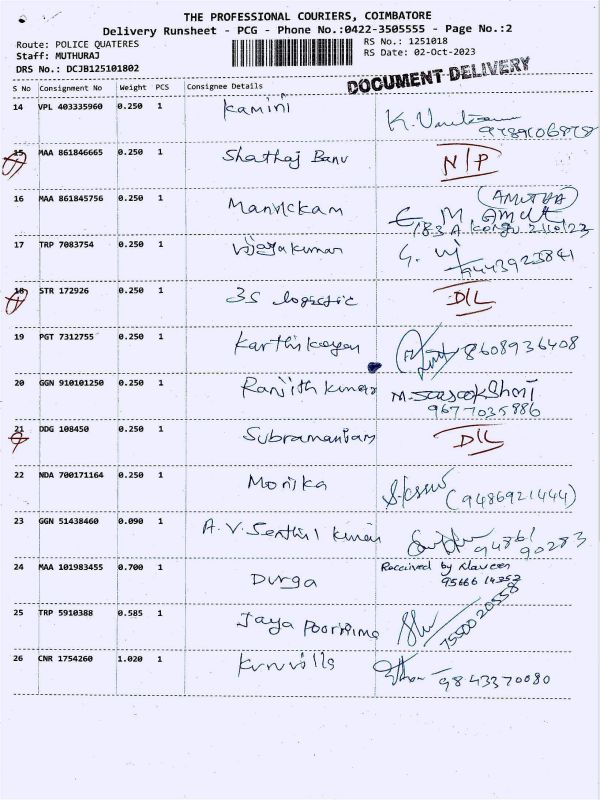 THE PROFESSIONAL COURIERS, COIMBATORE
Delivery Runsheet - PCG - Phone No.:0422-3505555 - Page No.:2
Route: POLICE QUATERES RS No.: 1251018
Staff: MUTHURAJ RS Date: 02-Oct-2023
DRS No.: DCJB125101802
DOCUMENT DELIVERY
S No Consignment No Weight PCS Consignee Details
14 VPL 403335960 0.250 1 Kamini
15 MAA 861846665 0.250 1 Shathaj Banu N/P
16 MAA 861845756 0.250 1 Manickam (AMUTHA)
17 TRP 7083754 0.250 1 Vijayakumar 9443923841
18 STR 172926 0.250 1 3S logistic D/L
19 PGT 7312755 0.250 1 Karthikeyan 8608936408
20 GGN 910101250 0.250 1 Ranjith kumar
9677035886
21 DDG 108450 0.250 1 Subramaniam D/L
22 NDA 700171164 0.250 1 Monika (9486921444)
23 GGN 51438460 0.090 1 A.V. Senthil kumar 94861
90283
24 MAA 101983455 0.700 1 Durga Received by Naveen
25 TRP 5910388 0.585 1 Jaya Poornima 7550020558
26 CNR 1754260 1.020 1 Kuruvilla 9843370080